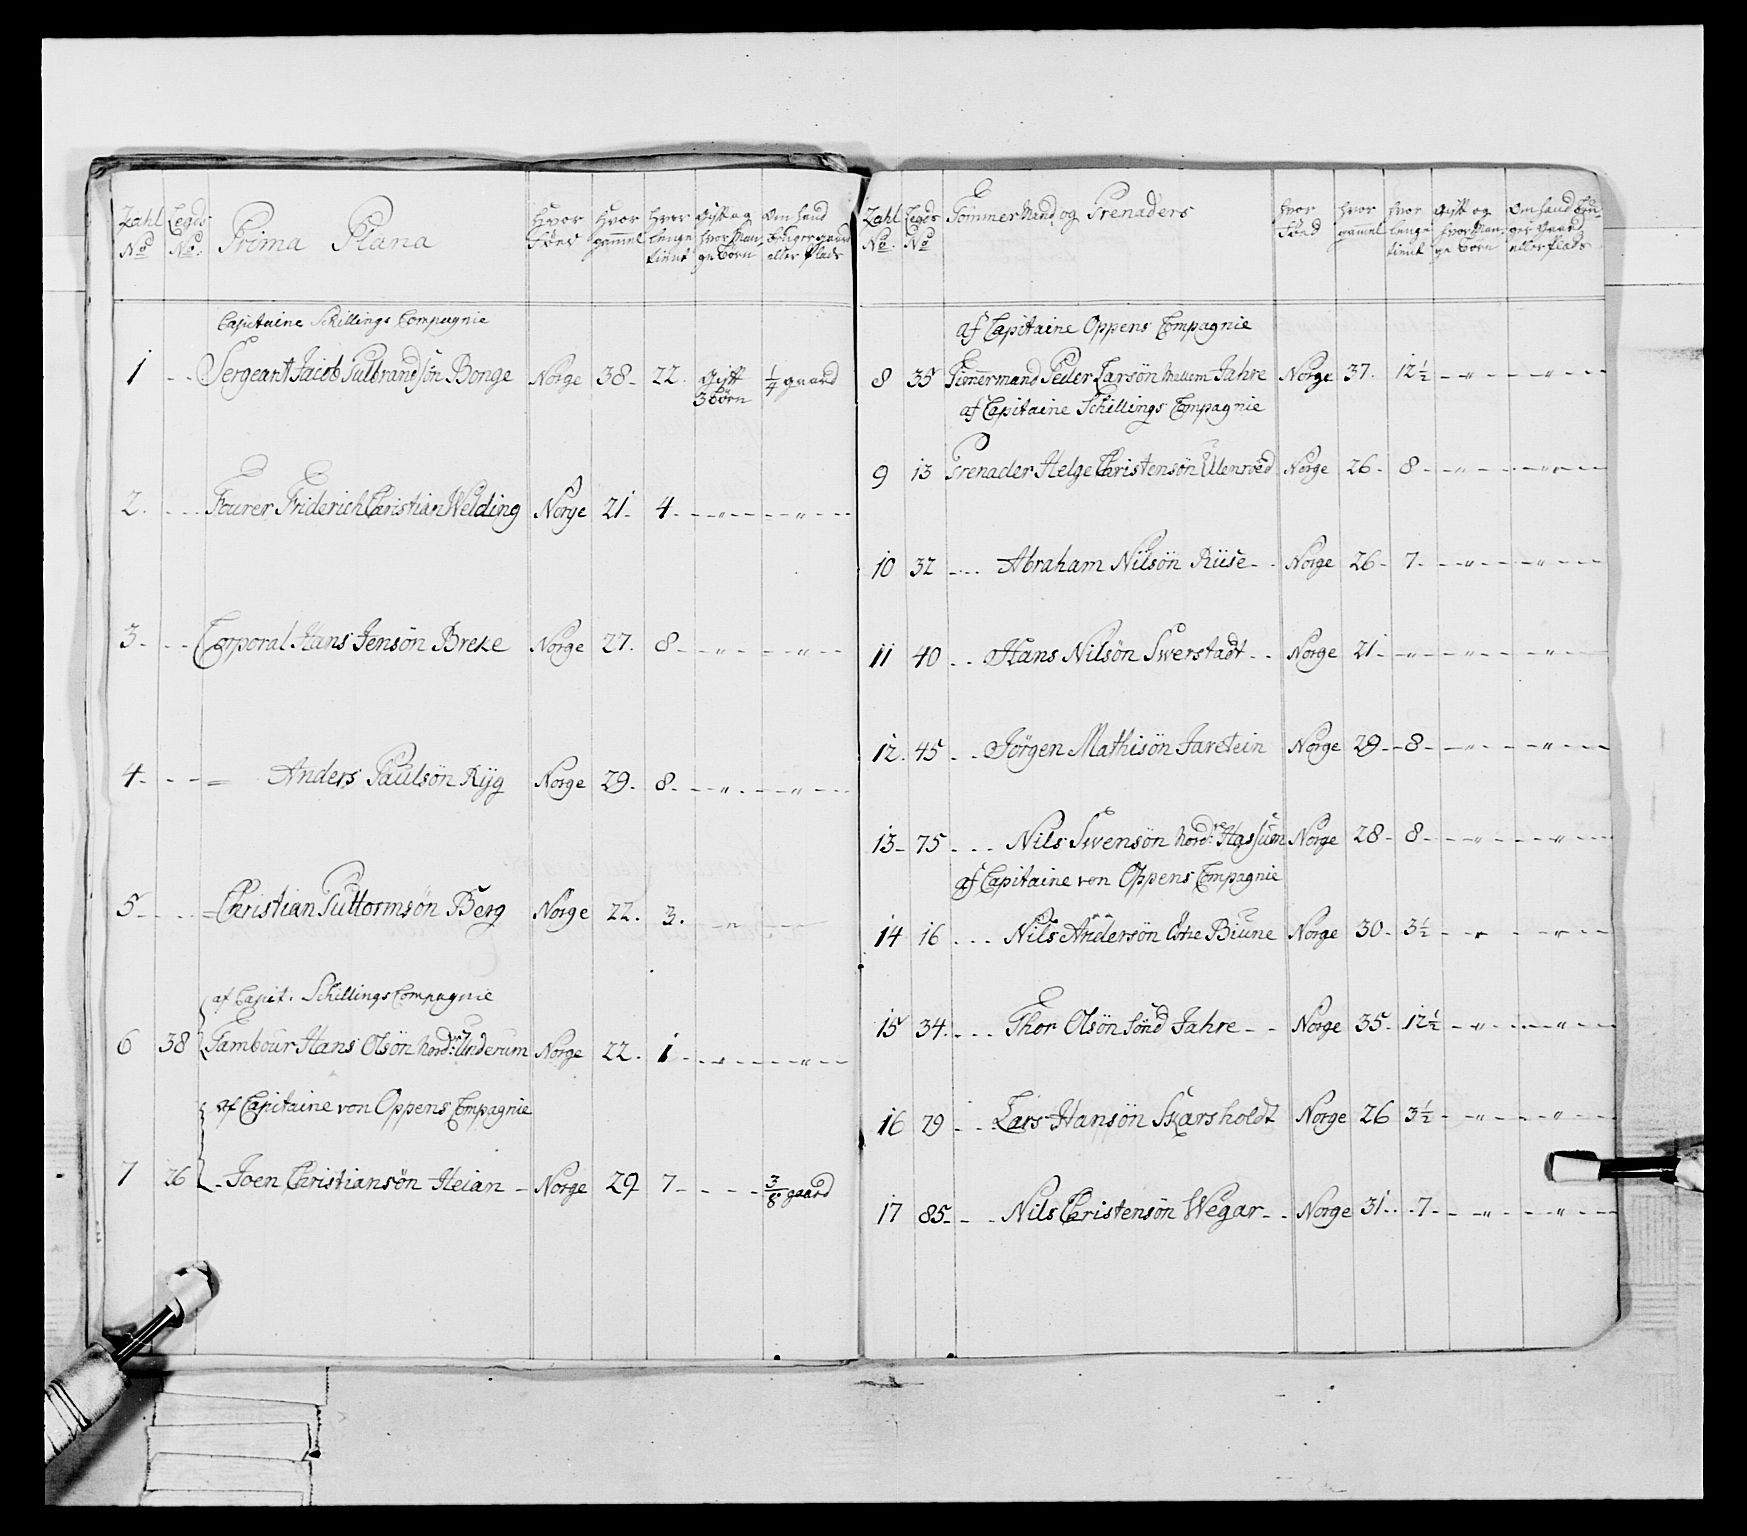 Zahl No | Legds No. | Prima Plana | Hvor föes | Hvor gammel | hvor lenge tient | Gift og hvor Mange Börn | Om hand bruger gaard eller Plads
Capitaine Schillings Compagnie
1 - - Sergeant Jacob Gulbrandsön Bonge Norge 38 - 22. Gift 3 börn 1/4 gaard
2. - - - Fourer Friderich Christian Welding Norge 21 - 4 - - " - - - " - -
3 - - - - Corporal Hans Jensön Breke Norge 27. 8 - - " - - - " - -
4 - - - - = Anders Paulsön Ryg Norge 29. 8 - - " - - - " - -
5 - - - - = Christian Guttormsön Berg Norge 22. 3. - - " - - - " -
af Capit: Schillings Compagnie
6 38 Tambour Hans Olsön Nord: Underum Norge 22. 1 - - " - - - " - -
af Capitaine von Oppens Compagnie
7 26 - Joen Christiansön Heian - Norge 29 7 - - - - 3/8 gaard
Zahl No. | Legds No | Tömmer Mand og Grenaders | hvor föed | hvor gamel | hvor lenge tient | Gift og hvor Mange Börn | Om hand bruger Gaard eller Plads
af Capitaine Oppens Compagnie
8 35 Timermand Peder Larsön Mellem Jahre Norge 37. 12 1/2 - " - - - " - -
af Capitaine Schillings Compagnie
9 13 Grenader Helge Christensön Ulenroed Norge 26 - 8 - - " - - - " - -
10 32 - - - Abraham Nilsön Riise - - Norge 26 - 7 - - " - - - " - -
11 40 - - Hans Nilsön Swerstadt - - Norge 21 - - " - - " - - - " - -
12. 45 - - Jörgen Mathisön Jarstein Norge 29 - 8 - - " - - - " - -
13 - 75 - - - Nils Swensön Nord: Hassum Norge 28 - 8 - - " - - - " - -
af Capitaine von Oppens Compagnie
14 16 - - - Nils Andersön Biune Norge 30 - 3 1/2 - " - - - " - -
15 34. - - - Thor Olsön Sönd Jahre - - Norge 35. 12 1/2 - " - - - " - -
16 79 - - - Lars Hansön Skarsholdt Norge 26 3 1/2 - " - - - " - -
17 85 - - - Nils Christensön Wegar - - Norge 31 - 7 - - " - - - " - -